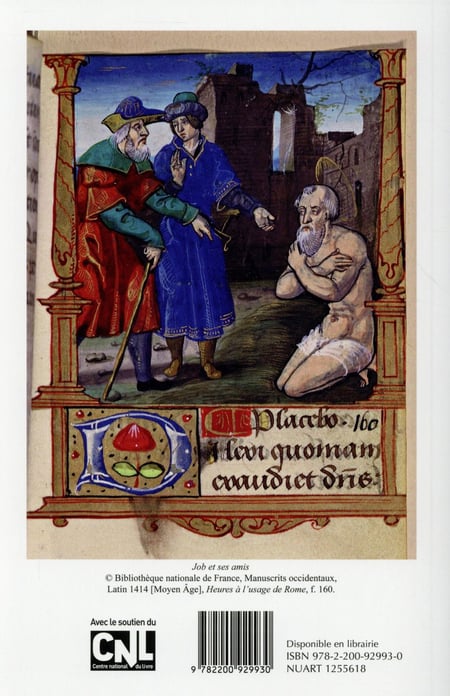 Placebo. 160
ilexi quoniam
exaudiet dñs.
Job et ses amis
© Bibliothèque nationale de France, Manuscrits occidentaux,
Latin 1414 [Moyen Âge], Heures à l’usage de Rome, f. 160.
Avec le soutien du
CNL
Centre national du livre
9 782200 929930
Disponible en librairie
ISBN 978-2-200-92993-0
NUART 1255618